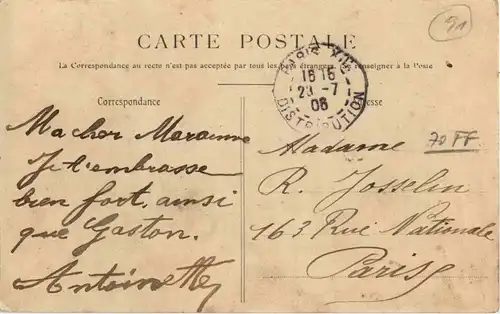 91
CARTE POSTALE
La Correspondance au recto n'est pas acceptée par tous les pays étrangers. Se renseigner à la Poste
PARIS XIII
16 15
29 -7
06
DISTRIBUTION
Correspondance
Ma cher Marainne
Je t'embrasse
bien fort, ainsi
que Gaston.
Antoinette
70 FF
Madame
R. Josselin
163 Rue Nationale
Paris